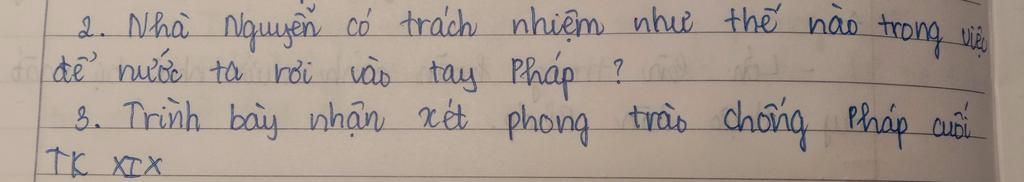 2. Nhà Nguyễn có trách nhiệm như thế nào trong việc
để nước ta rơi vào tay Pháp ?
3. Trình bày nhận xét phong trào chống Pháp cuối
TK XIX